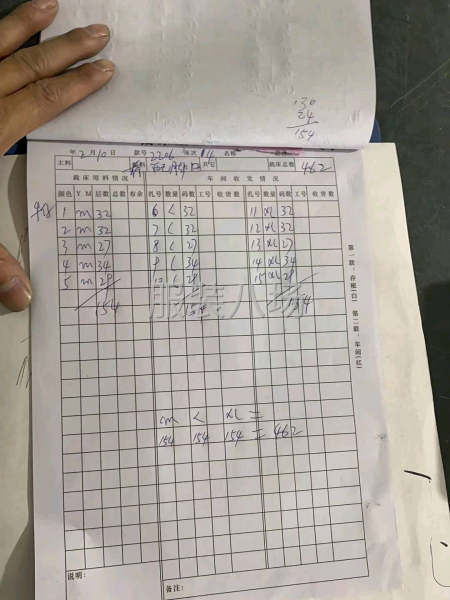 130
24
154
年 2 月 10 日 款号 2206 床次 16 名称
主料 裁床总数 462
裁床用料情况 车间收发情况
颜色 Y M 层数 总数 布余 扎号 数量 码数 工号 收货数 扎号 数量 码数 工号 收货数
1 m 32 6 L 32 11 XL 32
2 m 32 7 L 32 12 XL 32
3 m 27 8 L 27 13 XL 27
4 m 34 9 L 34 14 XL 34
5 m 28 10 L 28 15 XL 28
154 154 154
m L XL =
154 154 154 = 462
第一联：存根(白) 第二联：车间(红)
服装人场
说明：
备注：